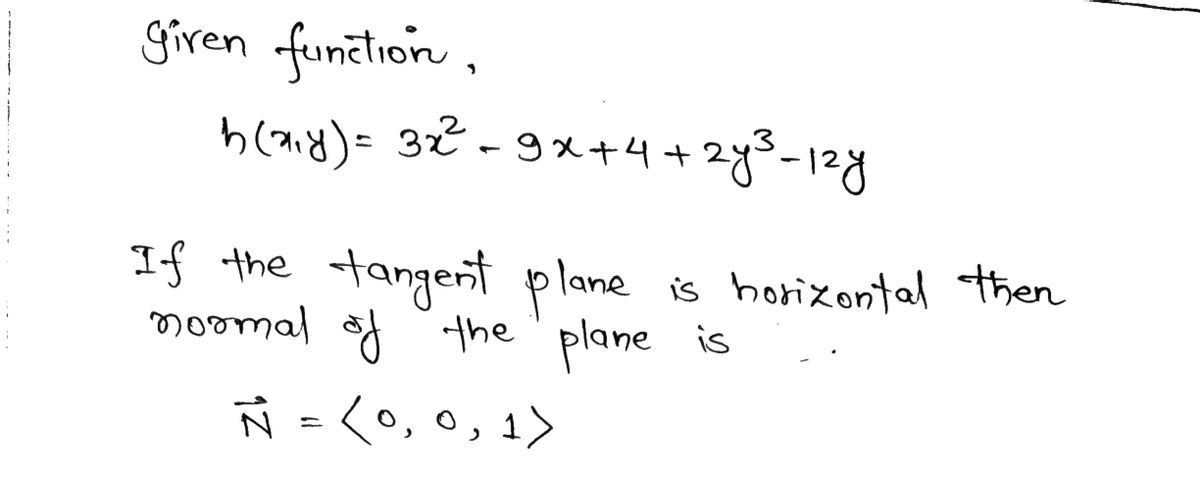 Given function,
h(x,y) = 3x² - 9x + 4 + 2y³ - 12y
If the tangent plane is horizontal then
normal of the plane is
N⃗ = ⟨0, 0, 1⟩